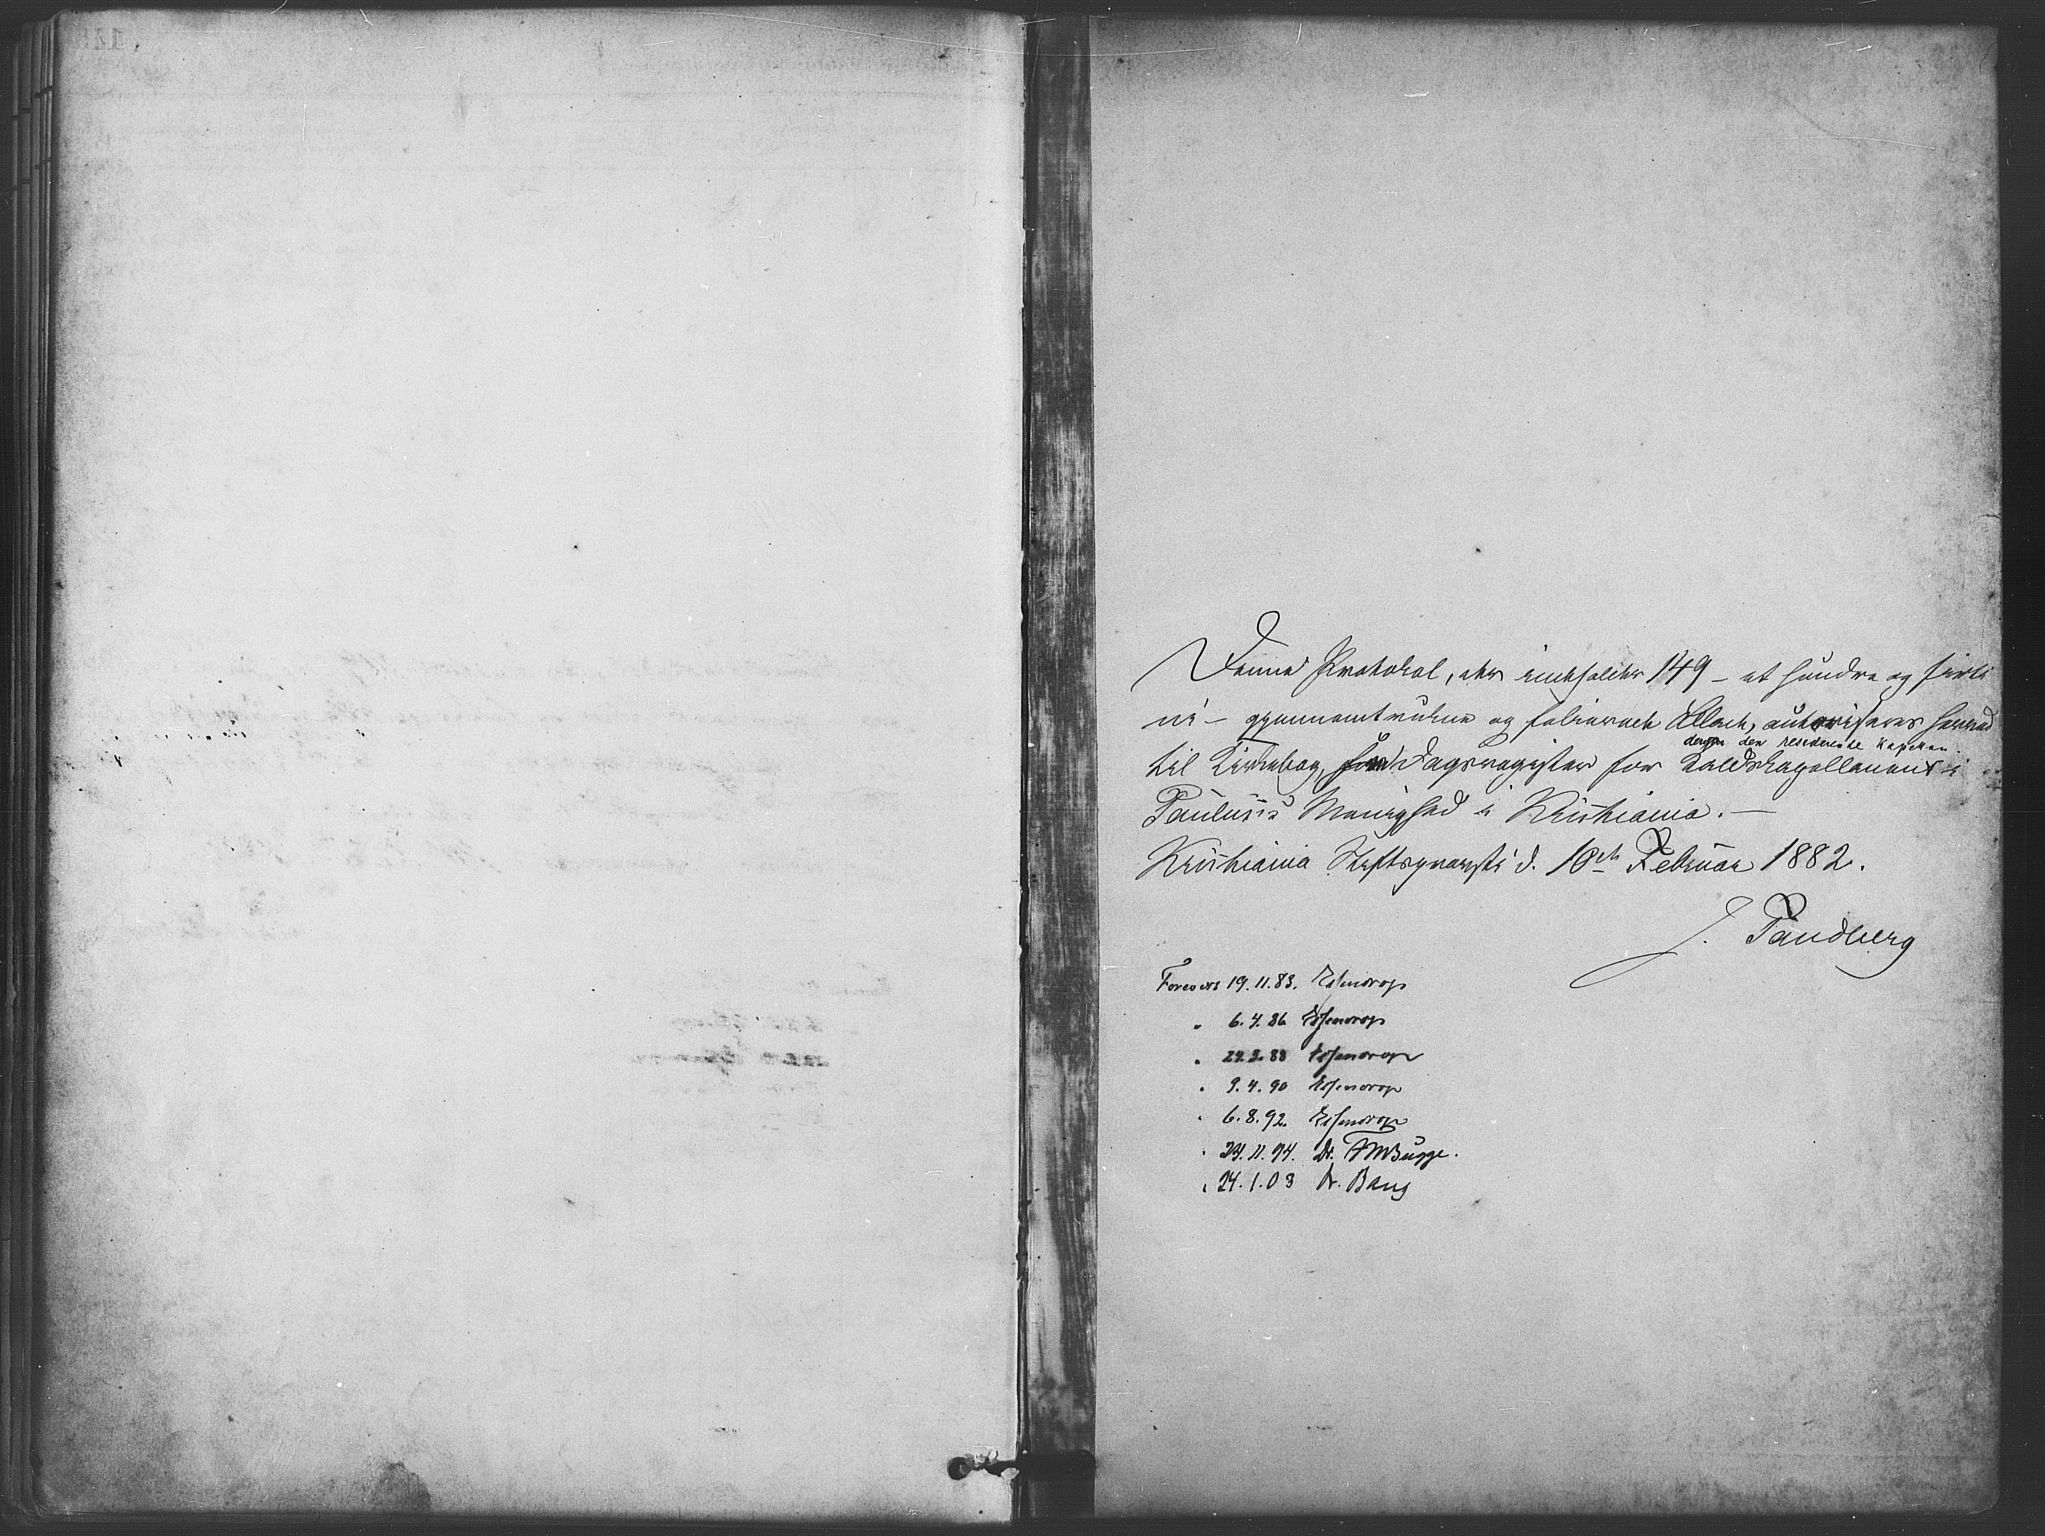 Denne Protokol, der indeholder 149 – et hundre og firti
ni – gjennemtrukne og folierede Blade, autoriseres herved
den residerende Kapellan
til Kirkebog, Dagsregister for Kaldskapellanen i
Paulus's Menighed i Kristiania. –
Kristiania Stiftsprovsti d. 10de Februar 1882.
J. Tandberg
Forevist 19.11.83. Essendrop
" 6.4.86 Essendrop
" 22.2.88 Essendrop
" 9.4.90 Essendrop
" 6.8.92. Essendrop
" 24.11.94. Dr. FWBugge.
" 24.1.03 Dr. Bang